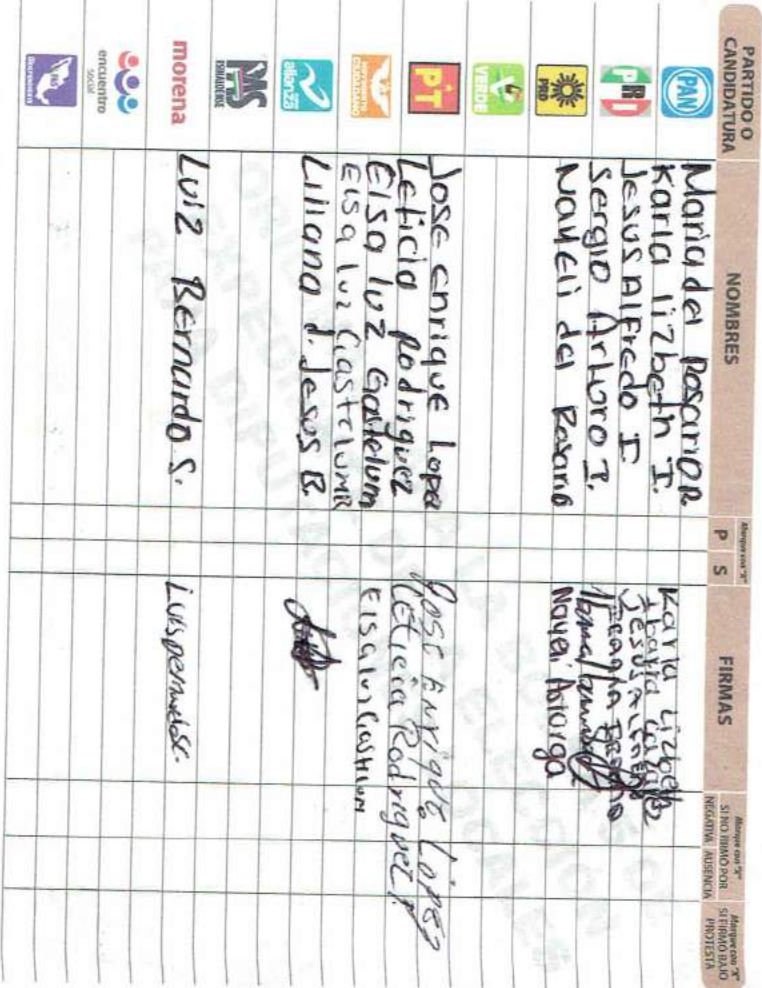 PARTIDO O CANDIDATURA
NOMBRES
Marque con "X"
P
S
FIRMAS
Marque con "X"
SI NO FIRMÓ POR
NEGATIVA
AUSENCIA
Marque con "X"
SI FIRMÓ BAJO
PROTESTA
PAN
Maria del Rosario R
Karla lizbeth I.
Karla Lizbeth
PRI
Jesus Alfredo I.
Sergio Arturo P.
PRD
Nayeli del Rosario
Nayeli Astorga
VERDE
PT
Jose enrique Lopez
José Enrique López
Leticia Rodriguez
Leticia Rodriguez
MOVIMIENTO CIUDADANO
Elsa luz Gastelum
Elsa luz Gastelum
Elsa luz Gastelum
alianza
Liliana d. Jesus B.
PAS
SINALOENSE
morena
Luiz Bernardo S.
encuentro social
PAIS
ORIGINAL
LA BO
DE
EXPEDI
ELECCIÓN
PARA DIPUTACIONES LOCALES